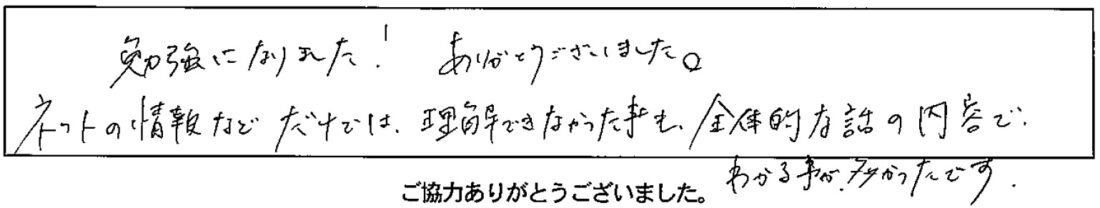 勉強になりました! ありがとうございました。
ネットの情報などだけでは、理解できなかった事も、全体的な話の内容で、
わかる事が、多かったです.
ご協力ありがとうございました。